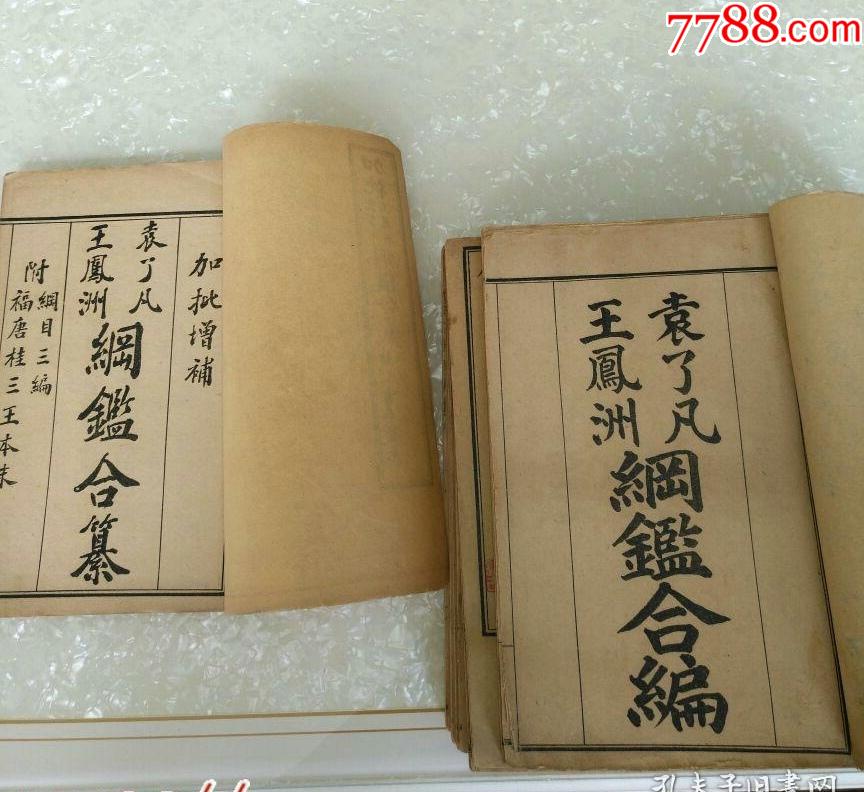 7788.com
加批增補
袁了凡
王鳳洲
綱鑑合纂
附綱目三編
福唐桂三王本末
袁了凡
王鳳洲
綱鑑合編
孔夫子旧書网